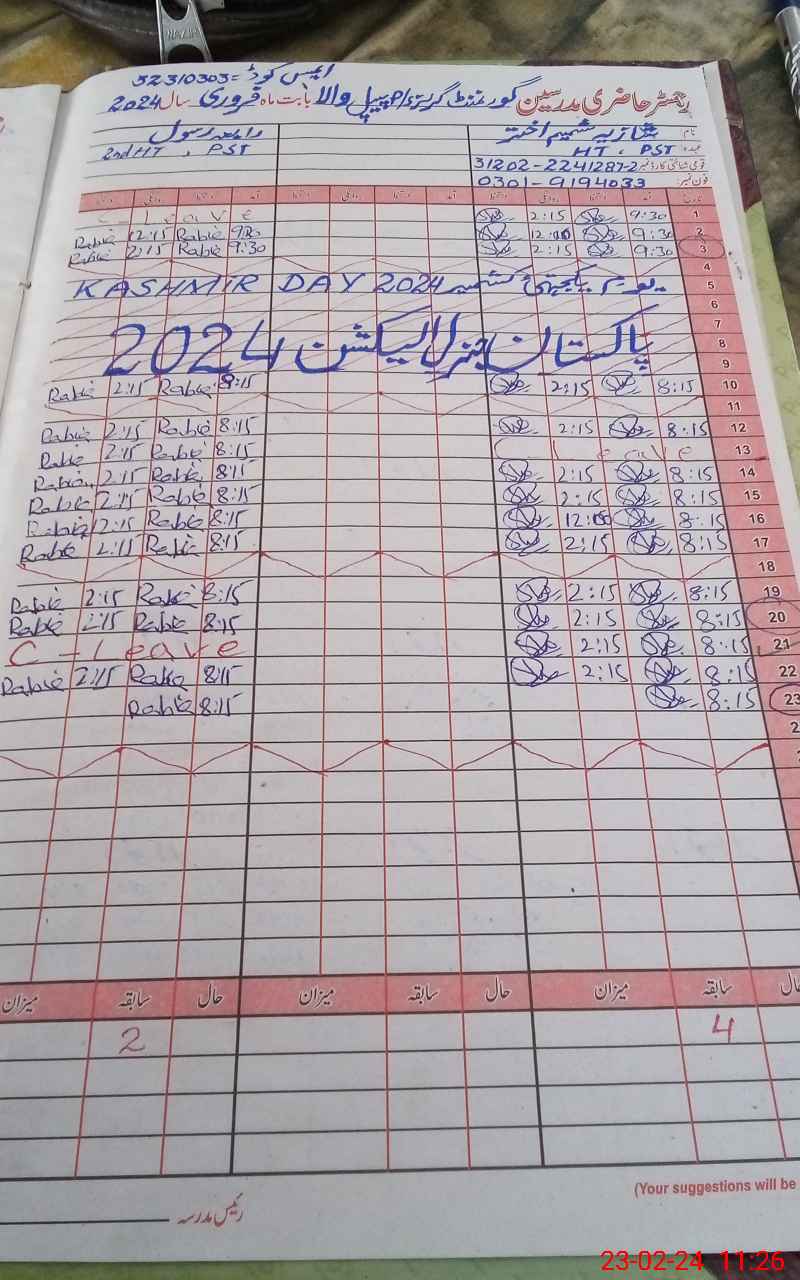 ایمس کوڈ = 32310303
رجسٹر حاضری مدرسین گورنمنٹ گرلز پیپل والا بابت ماہ فروری سال 2024
نام: شازیہ شمیم اختر رابعہ رسول
عہدہ: HT، PST 2nd HT، PST
قومی شناختی کارڈ نمبر 31202-2241287-2
فون نمبر: 0301-9194033
تاریخ آمد دستخط روانگی دستخط آمد دستخط روانگی دستخط آمد دستخط روانگی دستخط
1 9:30 2:15 C-Leave
2 9:30 12:00 9:30 Rabie 12:15 Rabie
3 9:30 2:15 9:30 Rabie 2:15 Rabie
4
5 یوم یکجہتی کشمیر 2024 KASHMIR DAY
6
7
8 پاکستان جنرل الیکشن 2024
9
10 8:15 2:15 8:15 Rabie 2:15 Rabie
11
12 8:15 2:15 8:15 Rabie 2:15 Rabie
13 C Leave 8:15 Rabie 2:15 Rabie
14 8:15 2:15 8:15 Rabie 2:15 Rabie
15 8:15 2:15 8:15 Rabie 2:15 Rabie
16 8:15 12:00 8:15 Rabie 12:15 Rabie
17 8:15 2:15 8:15 Rabie 2:15 Rabie
18
19 8:15 2:15 8:15 Rabie 2:15 Rabie
20 8:15 2:15 8:15 Rabie 2:15 Rabie
21 8:15 2:15 C-Leave
22 8:15 2:15 8:15 Rabie 2:15 Rabie
23 8:15 8:15 Rabie
حال سابقہ میزان حال سابقہ میزان حال سابقہ میزان
4 2
(Your suggestions will be
رئیس مدرسہ
23-02-24 11:26